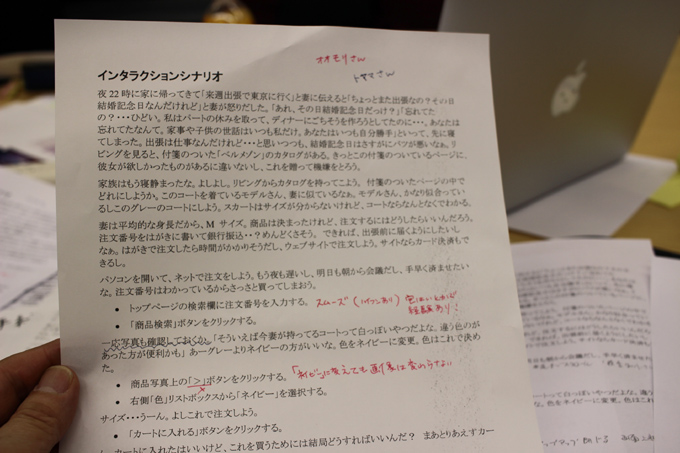 オオモリさん
トヤマさん
インタラクションシナリオ
夜22時に家に帰ってきて「来週出張で東京に行く」と妻に伝えると「ちょっとまた出張なの？その日
結婚記念日なんだけれど」と妻が怒りだした。「あれ、その日結婚記念日だっけ？」「忘れてた
の？・・・ひどい。私はパートの休みを取って、ディナーにごちそうを作ろうとしてたのに・・・、あなたは
忘れてたなんて。家事や子供の世話はいつも私だけ。あなたはいつも自分勝手」といって、先に寝
てしまった。出張は仕事なんだけど・・・と思いつつも、結婚記念日はさすがにバツが悪いなぁ。リ
ビングを見ると、付箋のついた「ベルメゾン」のカタログがある。きっとこの付箋のついているページに、
彼女が欲しかったものがあるに違いないし、これを贈って機嫌をとろう。
家族はもう寝静まったな。よしよし。リビングからカタログを持ってこよう。付箋のついたページの中で
どれにしようか。このコートを着ているモデルさん、妻に似ているなぁ。モデルさん、かなり似合ってい
るしこのグレーのコートにしよう。スカートはサイズが分からないけれど、コートならなんとなくでわかる。
妻は平均的な身長だから、Mサイズ。商品は決まったけれど、注文するにはどうしたらいいんだろう。
注文番号をはがきに書いて銀行振込・・？めんどくさそう。できれば、出張前に届くようにしたいし
なぁ。はがきで注文したら時間がかかりそうだし、ウェブサイトで注文しよう。サイトならカード決済もで
きるし。
パソコンを開いて、ネットで注文をしよう。もう夜も遅いし、明日も朝から会議だし、手早く済ませたい
な。注文番号はわかっているからさっさと買ってしまおう。
• トップページの検索欄に注文番号を入力する。 スムーズ（ハイフンあり）
経験あり！
• 「商品検索」ボタンをクリックする。
一応写真も確認しておくか。「そういえば今妻が持ってるコートって白っぽいやつだよな、違う色のが
あった方が便利かも」あーグレーよりネイビーの方がいいな。色をネイビーに変更。色はこれで決め
た。
• 商品写真上の「＞」ボタンをクリックする。 「ネイビー」に変えても画像は変わらない
• 右側「色」リストボックスから「ネイビー」を選択する。
サイズ・・・うーん。よしこれで注文しよう。
• 「カートに入れる」ボタンをクリックする。
カートに入れたはいいけど、これを買うためには結局どうすればいいんだ？ まあとりあえずカー